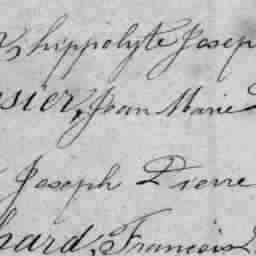 , hippolyte Josep
sier, Jean Marie
Joseph Pierre
hard, Francois